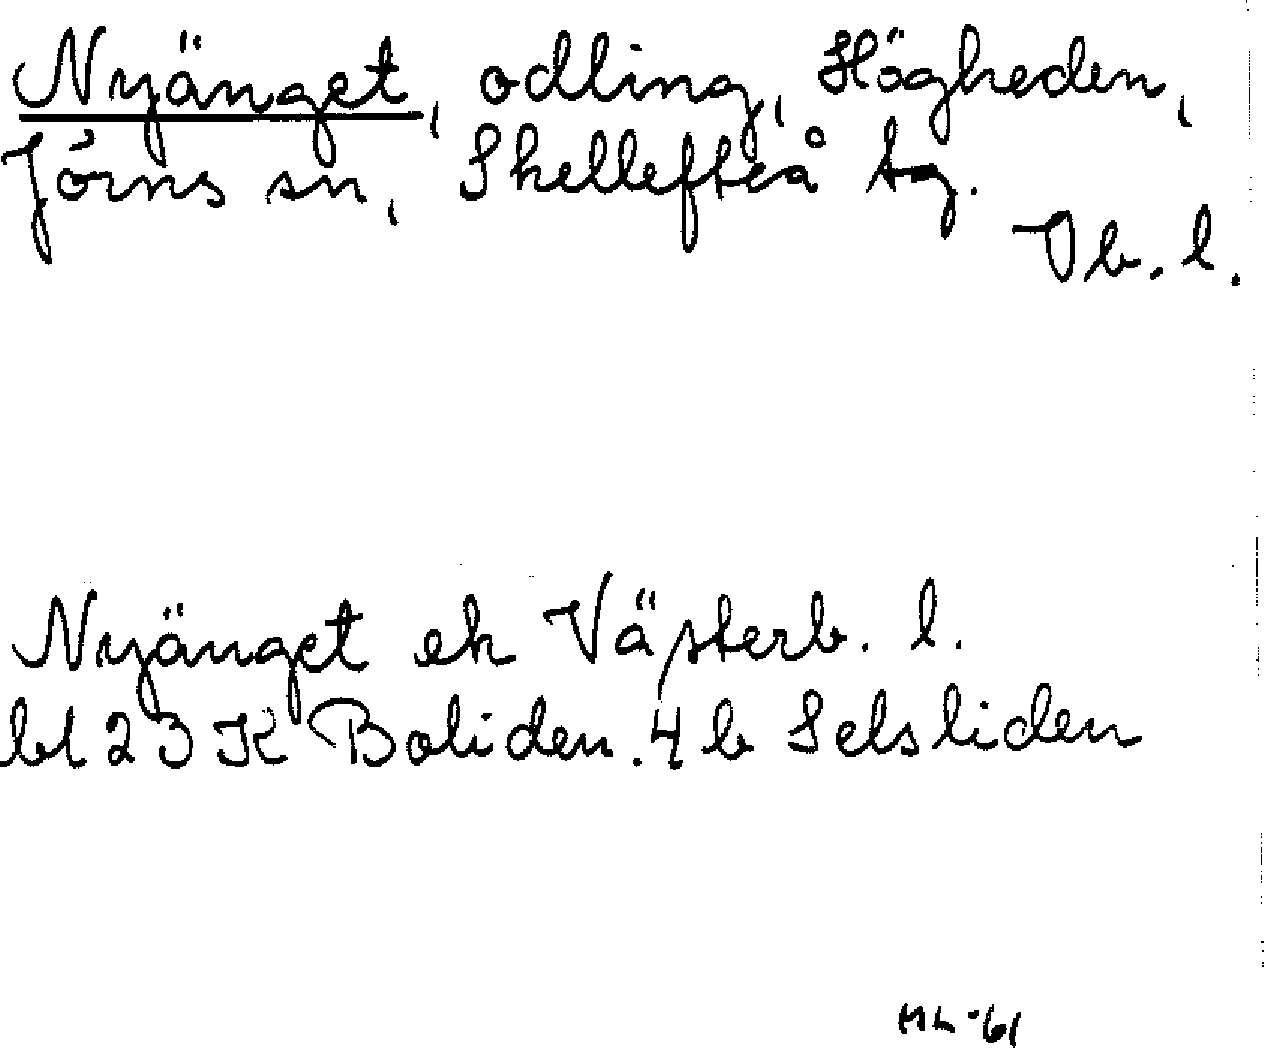 Nyänget, odling, Högheden,
Jörns sn, Skellefteå tg.
Vb. l.
Nyänget ek Västerb. l.
bl 23 K Boliden. 4 b Selsliden
HL -61